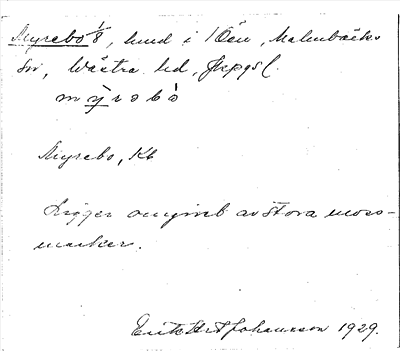 Myrebo 1/8, hmd i Öen, Malmbäcks
sn, Västra hd, Jkpgs l.
m ȳ r e b ò
Myrebo, Kb
Ligger omgivet av stora moss-
marker.
Erik Johansson 1929.